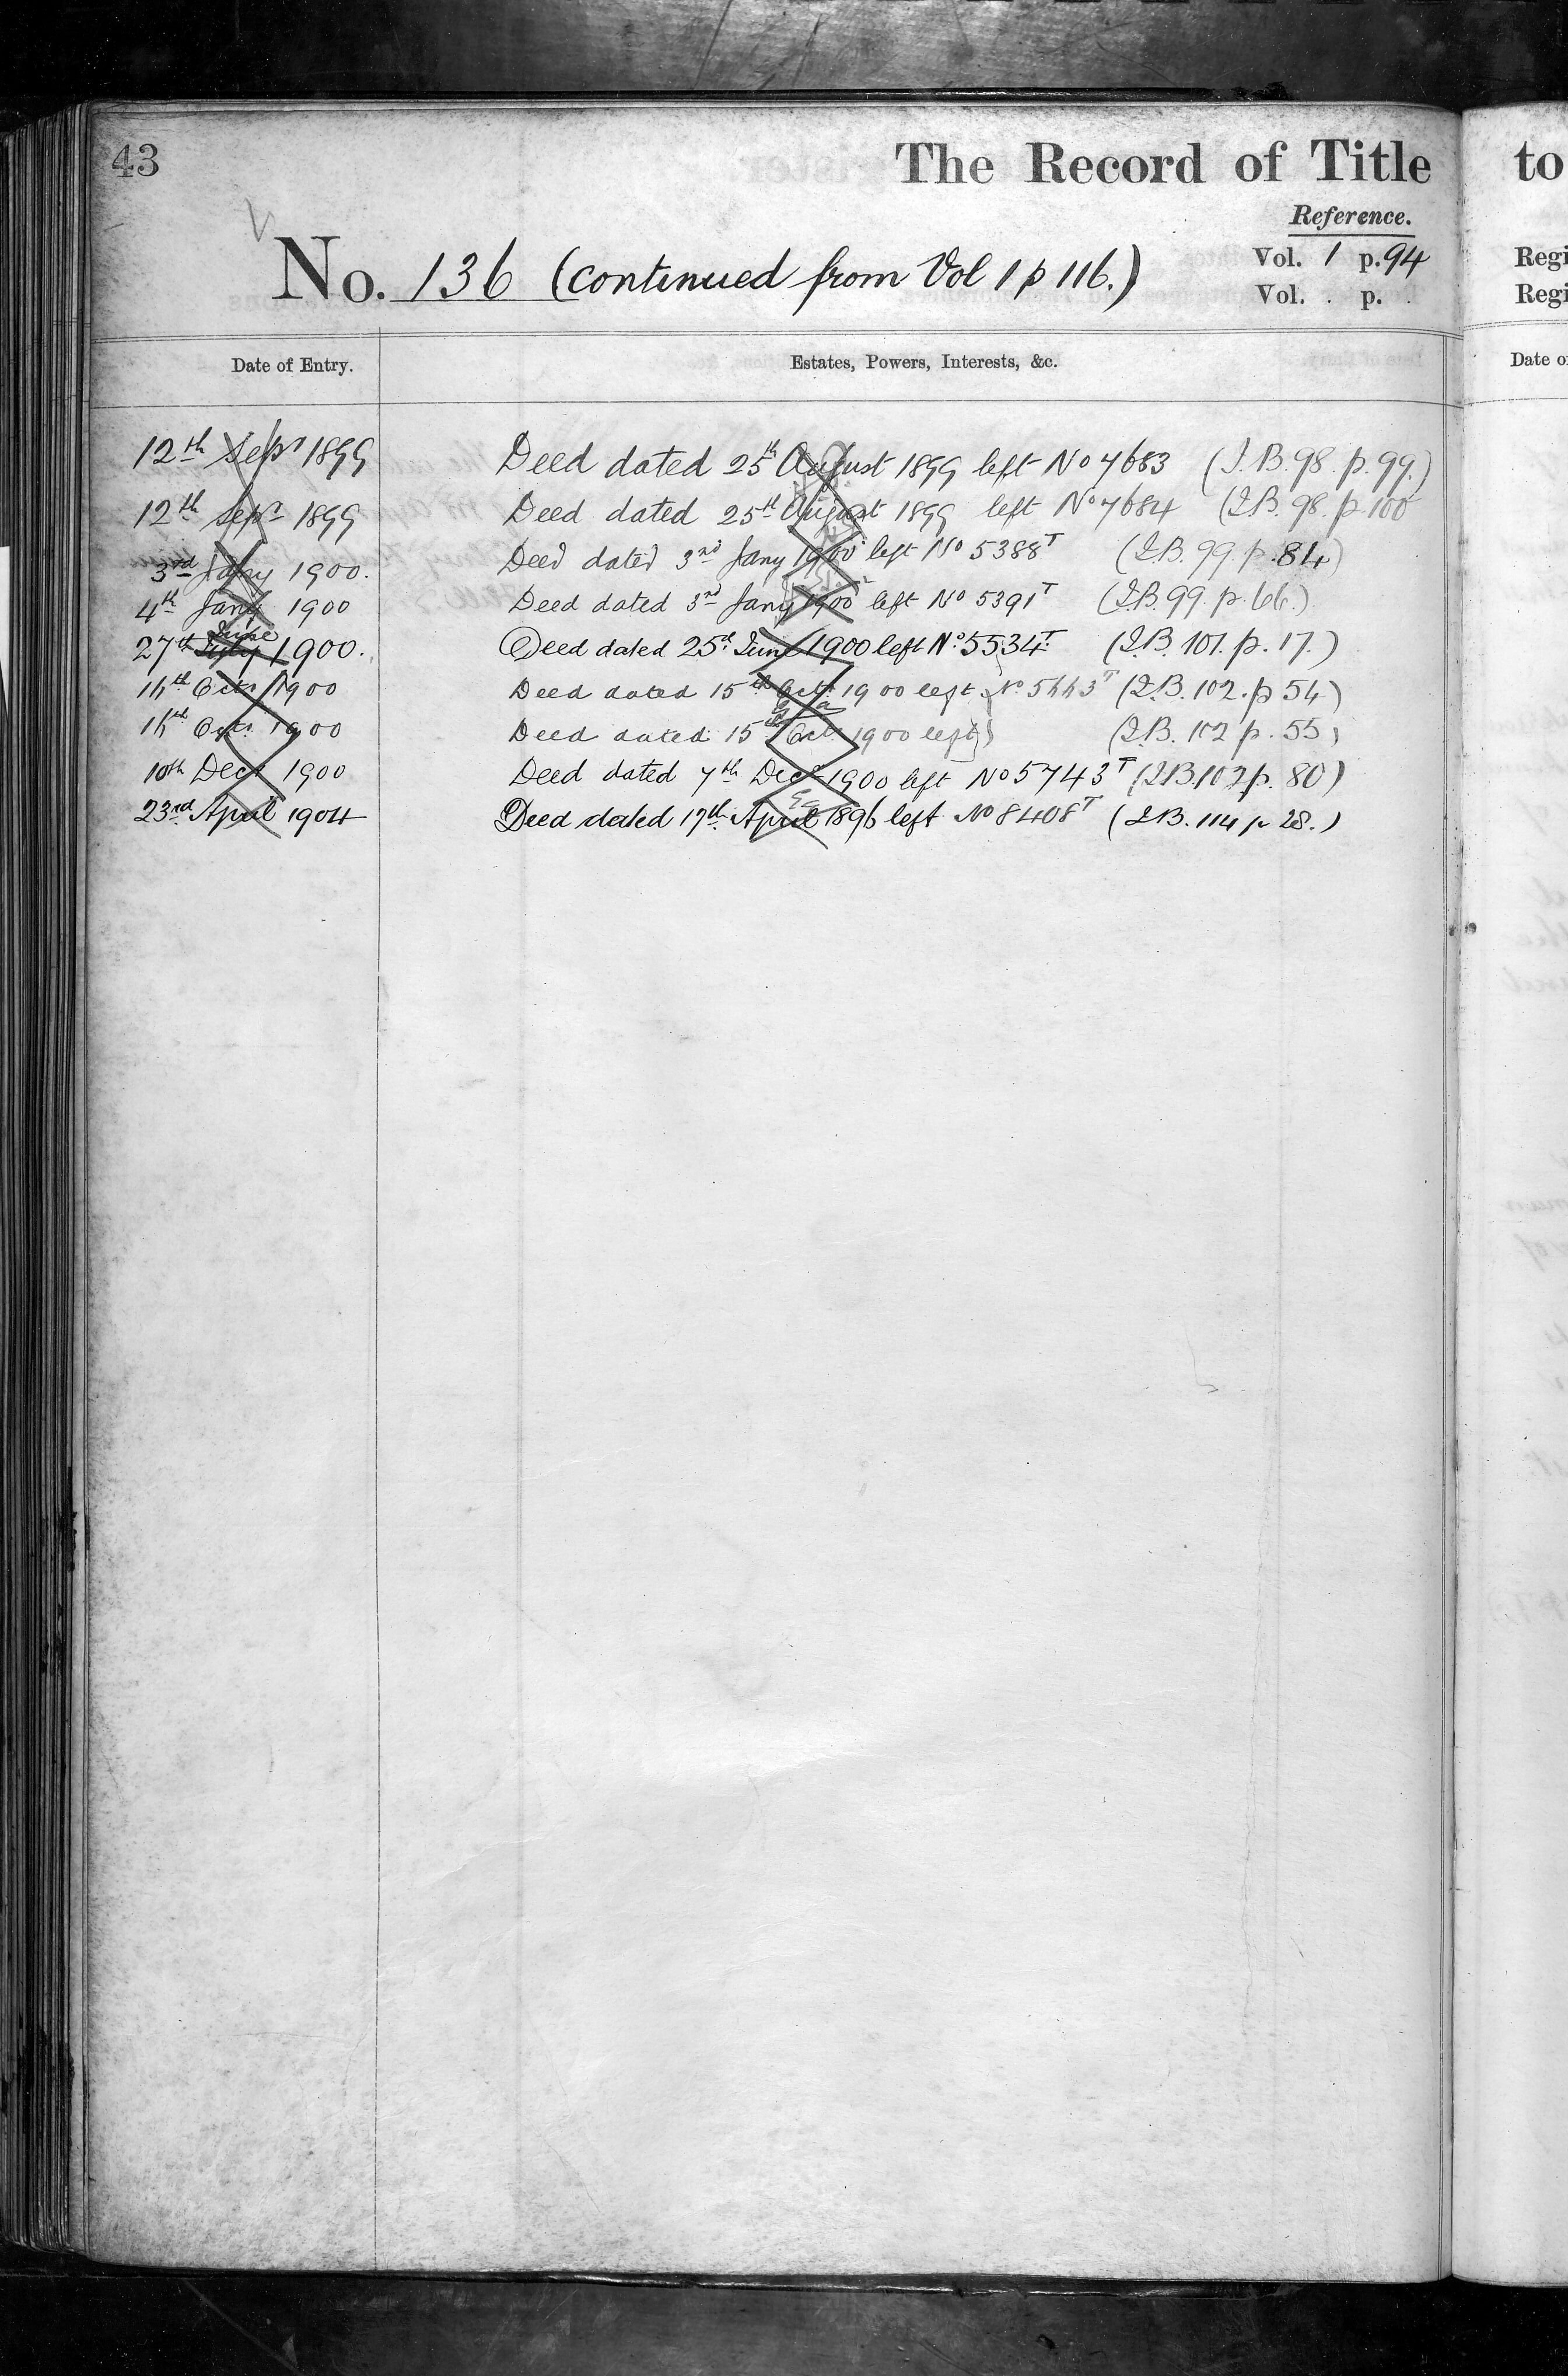 43
The Record of Title to
Reference.
No. 136 (continued from Vol 1 p 116.)
Vol. 1 p. 94
Vol. . p. .
Regi
Regi
Date of Entry. Estates, Powers, Interests, &c.
Date o
12th Sepr 1899 Deed dated 25th August 1899 left No 7683 (I.B. 98. p. 99.)
12th Sepr 1899 Deed dated 25th August 1899 left No 7684 (I.B. 98. p. 100
3rd Jany 1900. Deed dated 3rd Jany 1900 left No 5388T (I.B. 99. p. 84)
4th Jany 1900 Deed dated 3rd Jany 1900 left No 5391T (I.B. 99. p. 66.)
27th July June 1900. Deed dated 25th June 1900 left No. 5534T (I.B. 101. p. 17.)
16th Octr 1900 Deed dated 15th Octr 1900 left No 5663T (I.B. 102. p 54)
16th Octr 1900 Deed dated 15th Octr 1900 left (I.B. 102 p. 55)
10th Decr 1900 Deed dated 7th Decr 1900 left No 5743T (I.B. 102 p. 80)
23rd April 1904 Deed dated 17th April 1896 left No 8408T (I.B. 114 p 28.)